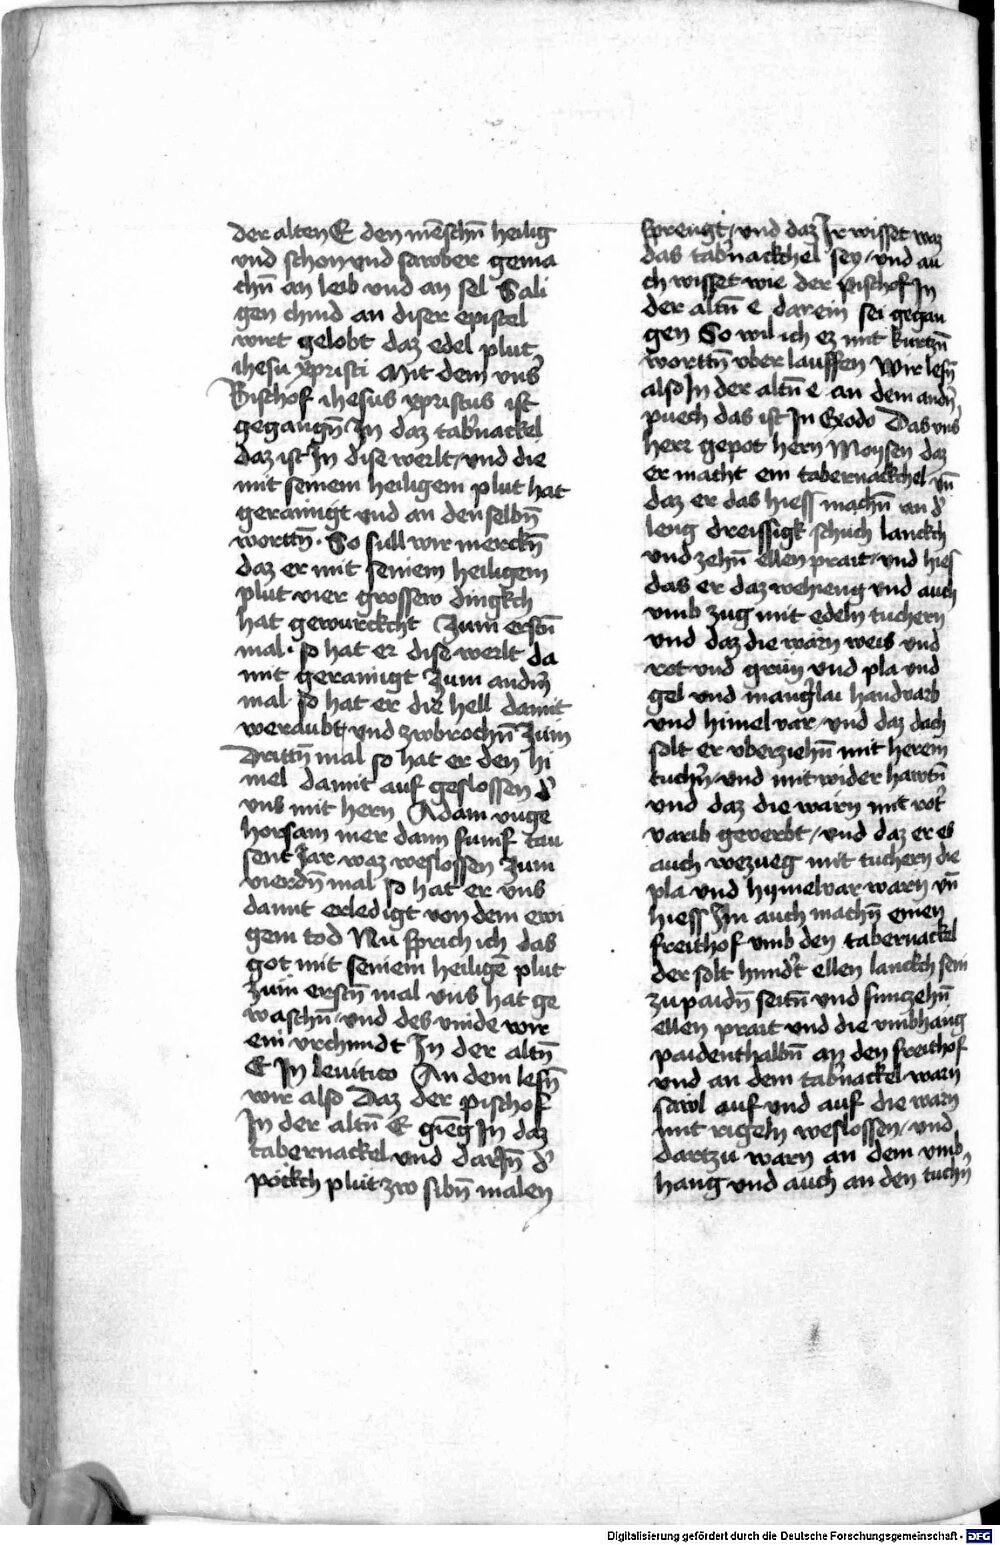 der alten E den mēschn̄ heilig
vnd schon vnd sawber gema
chn̄ an leib vnd an sel Sali
gen chind an diser epistel
wirt gelobt daz edel plut
ihesu xpristi Mit dem vns̾
Bischof ihesus xpristus ist
gegangn̄ In daz tab̾nackel
daz ist In dise werlt / vnd die
mit seinem heiligem plut hat
gerainigt vnd an denselbn̄
wortn̄ · So sull wir merckn̄
daz er mit seinem heiligem
plut vier grossew dingkch
hat gewurckcht Zum erstn̄
mal · so hat er dise werlt da
mit gerainigt Zum andn̾
mal · so hat er die hell damit
weraubt / vnd zwbrochn̄ Zum
Drittn̄ mal so hat er den hi
mel damit auf geslossen d̾
vns mit hern Adam vnge
horsam mer dann funf tau
sent Jar waz weslossen Zum
vierdn̄ mal so hat er vns
damit erledigt von dem ewi
gem tod Nu sprich ich das
got mit seinem heiligē plut
Zum erstn̄ mal vns hat ge
waschn̄ / vnd des vinde wir
ein vrchundt In der altn̄
E In leuitico An dem lesn̄
wir also Daz der pischof
In der altn̄ E gieng In daz
tabernackel vnd darIn̄ d̾
pöckch pluit zw sibn̄ malen
sprengt / vnd daz Ir wisset waz
das tab̾nackchel sey / vnd au
ch wisset wie der pischof In
der altn̄ e darein sei gegan
gen So wil ich ez mit kurtzn̄
wortn̄ vber lauffen Wir lesn̄
also In der altn̄ e an dem andn̾
puech das ist In Exodo Das vns̾
herr gepot hern Moysen daz
er macht ein tabernackchel vn̄
daz er das hiess machn̄ an d̾
leng dreissigk schuch lanckh
vnd zehn̄ ellen prait / vnd hies
das er daz wehieng vnd auch
vmb zug mit edeln tuchern
vnd daz die warn weis vnd
rot vnd grün vnd pla vnd
gel vnd mang̾lai handvarb
vnd himel var / vnd daz dach
solt er vberziehn̄ mit herein
tuchn̾ / vnd mit wider hawtn̄
vnd daz die warn mit rot̾
varib geverbt / vnd daz er es
auch wezueg mit tuchern die
pla vnd hymelvar warn vn̄
hiess Im auch machn̄ einen
freithof vmb den tabernackel
der solt hund̾t ellen lanckch sein
zu paidn̄ seitn̄ vnd funczehn̄
ellen prait vnd die vmbhang
paidenthalbn̄ an den freithof
vnd an dem tab̾nackel warn
sawl auf vnd auf die warn
mit rigeln weslossen / vnd
dartzu warn an dem vmb
hang vnd auch an den tuchn̾
Digitalisierung gefördert durch die Deutsche Forschungsgemeinschaft - DFG